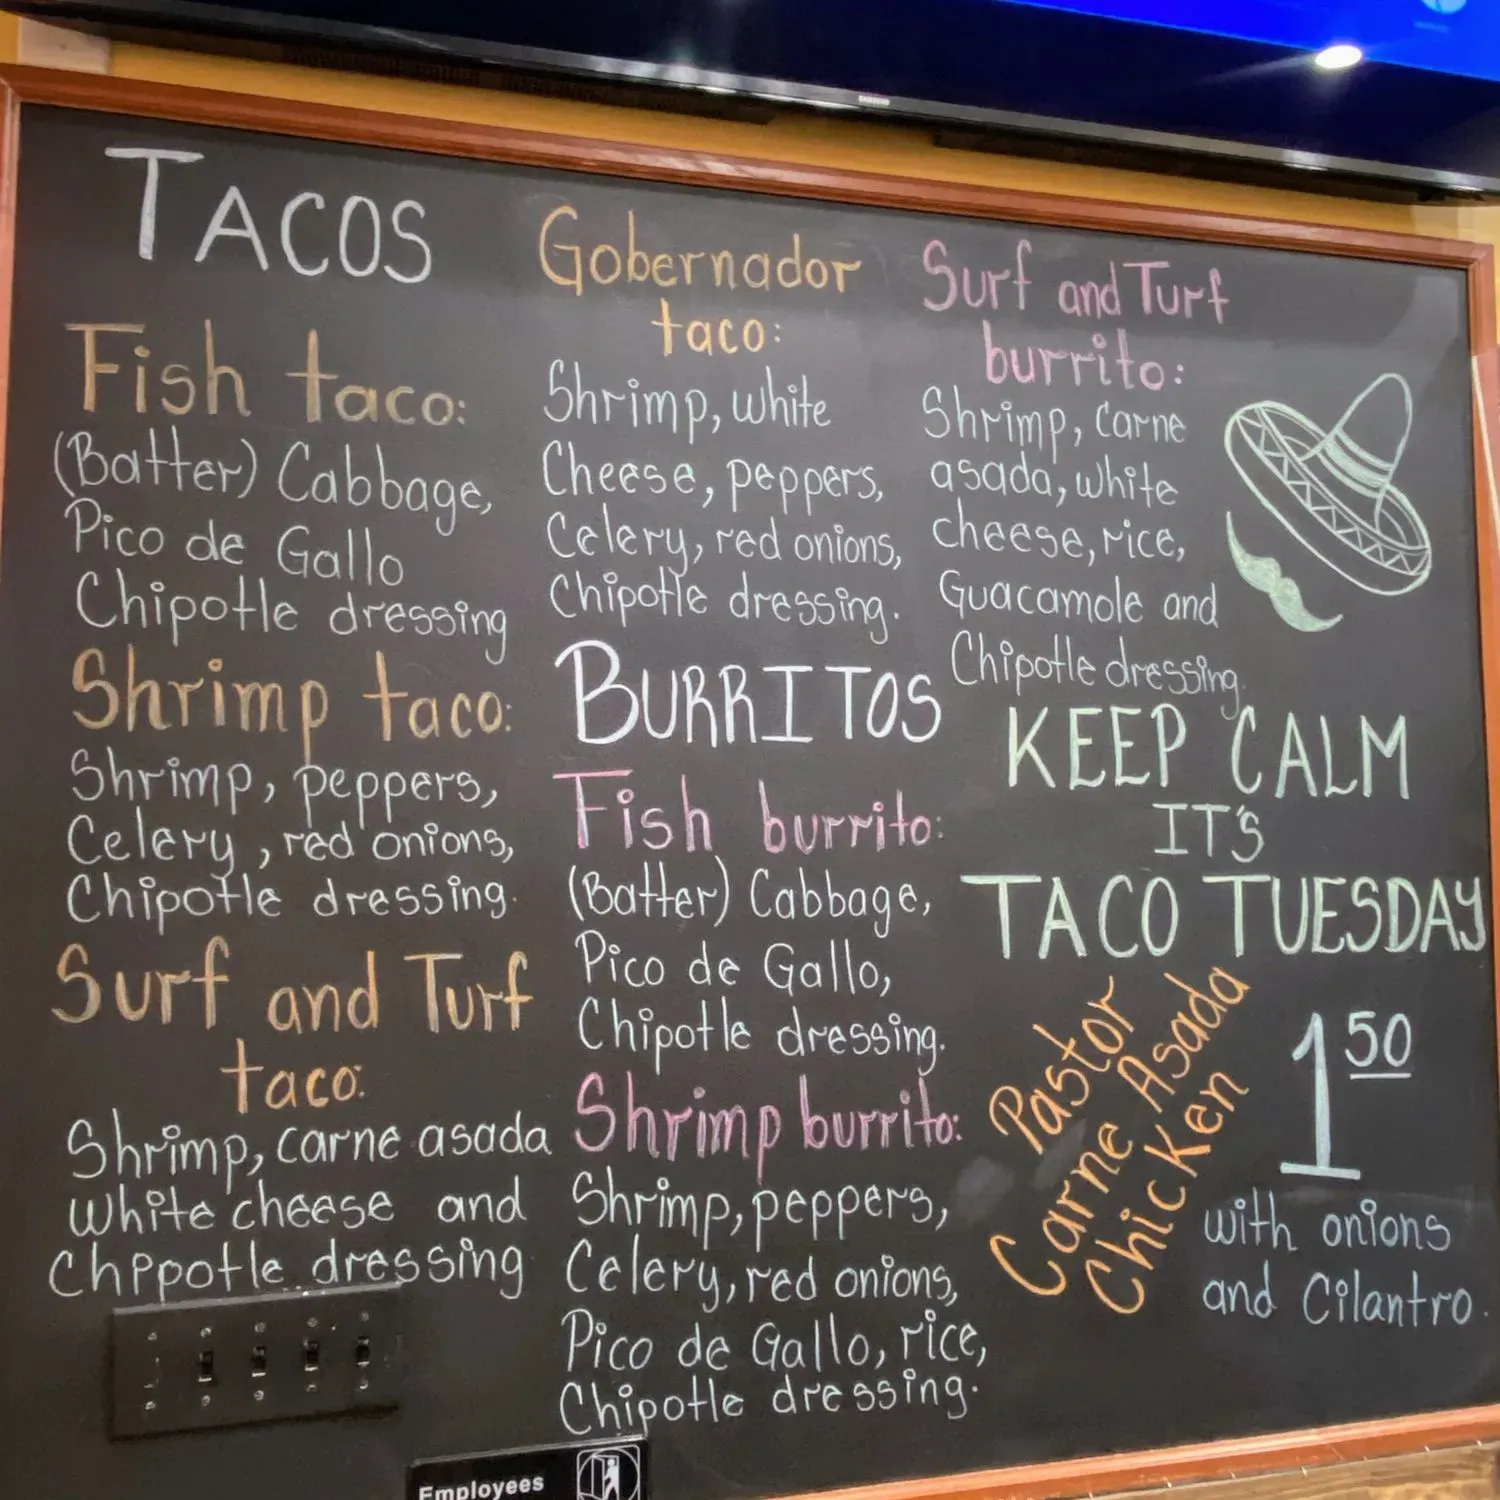 TACOS
Fish taco:
(Batter) Cabbage,
Pico de Gallo
Chipotle dressing
Shrimp taco:
Shrimp, peppers,
Celery, red onions,
Chipotle dressing.
Surf and Turf
taco:
Shrimp, carne asada
white cheese and
Chppotle dressing
Gobernador
taco:
Shrimp, white
Cheese, peppers,
Celery, red onions,
Chipotle dressing.
BURRITOS
Fish burrito:
(Batter) Cabbage,
Pico de Gallo,
Chipotle dressing.
Shrimp burrito:
Shrimp, peppers,
Celery, red onions,
Pico de Gallo, rice,
Chipotle dressing.
Surf and Turf
burrito:
Shrimp, carne
asada, white
cheese, rice,
Guacamole and
Chipotle dressing.
KEEP CALM
IT'S
TACO TUESDAY
Pastor
Carne Asada
Chicken
1 50
with onions
and Cilantro.
Employees
SAMSUNG